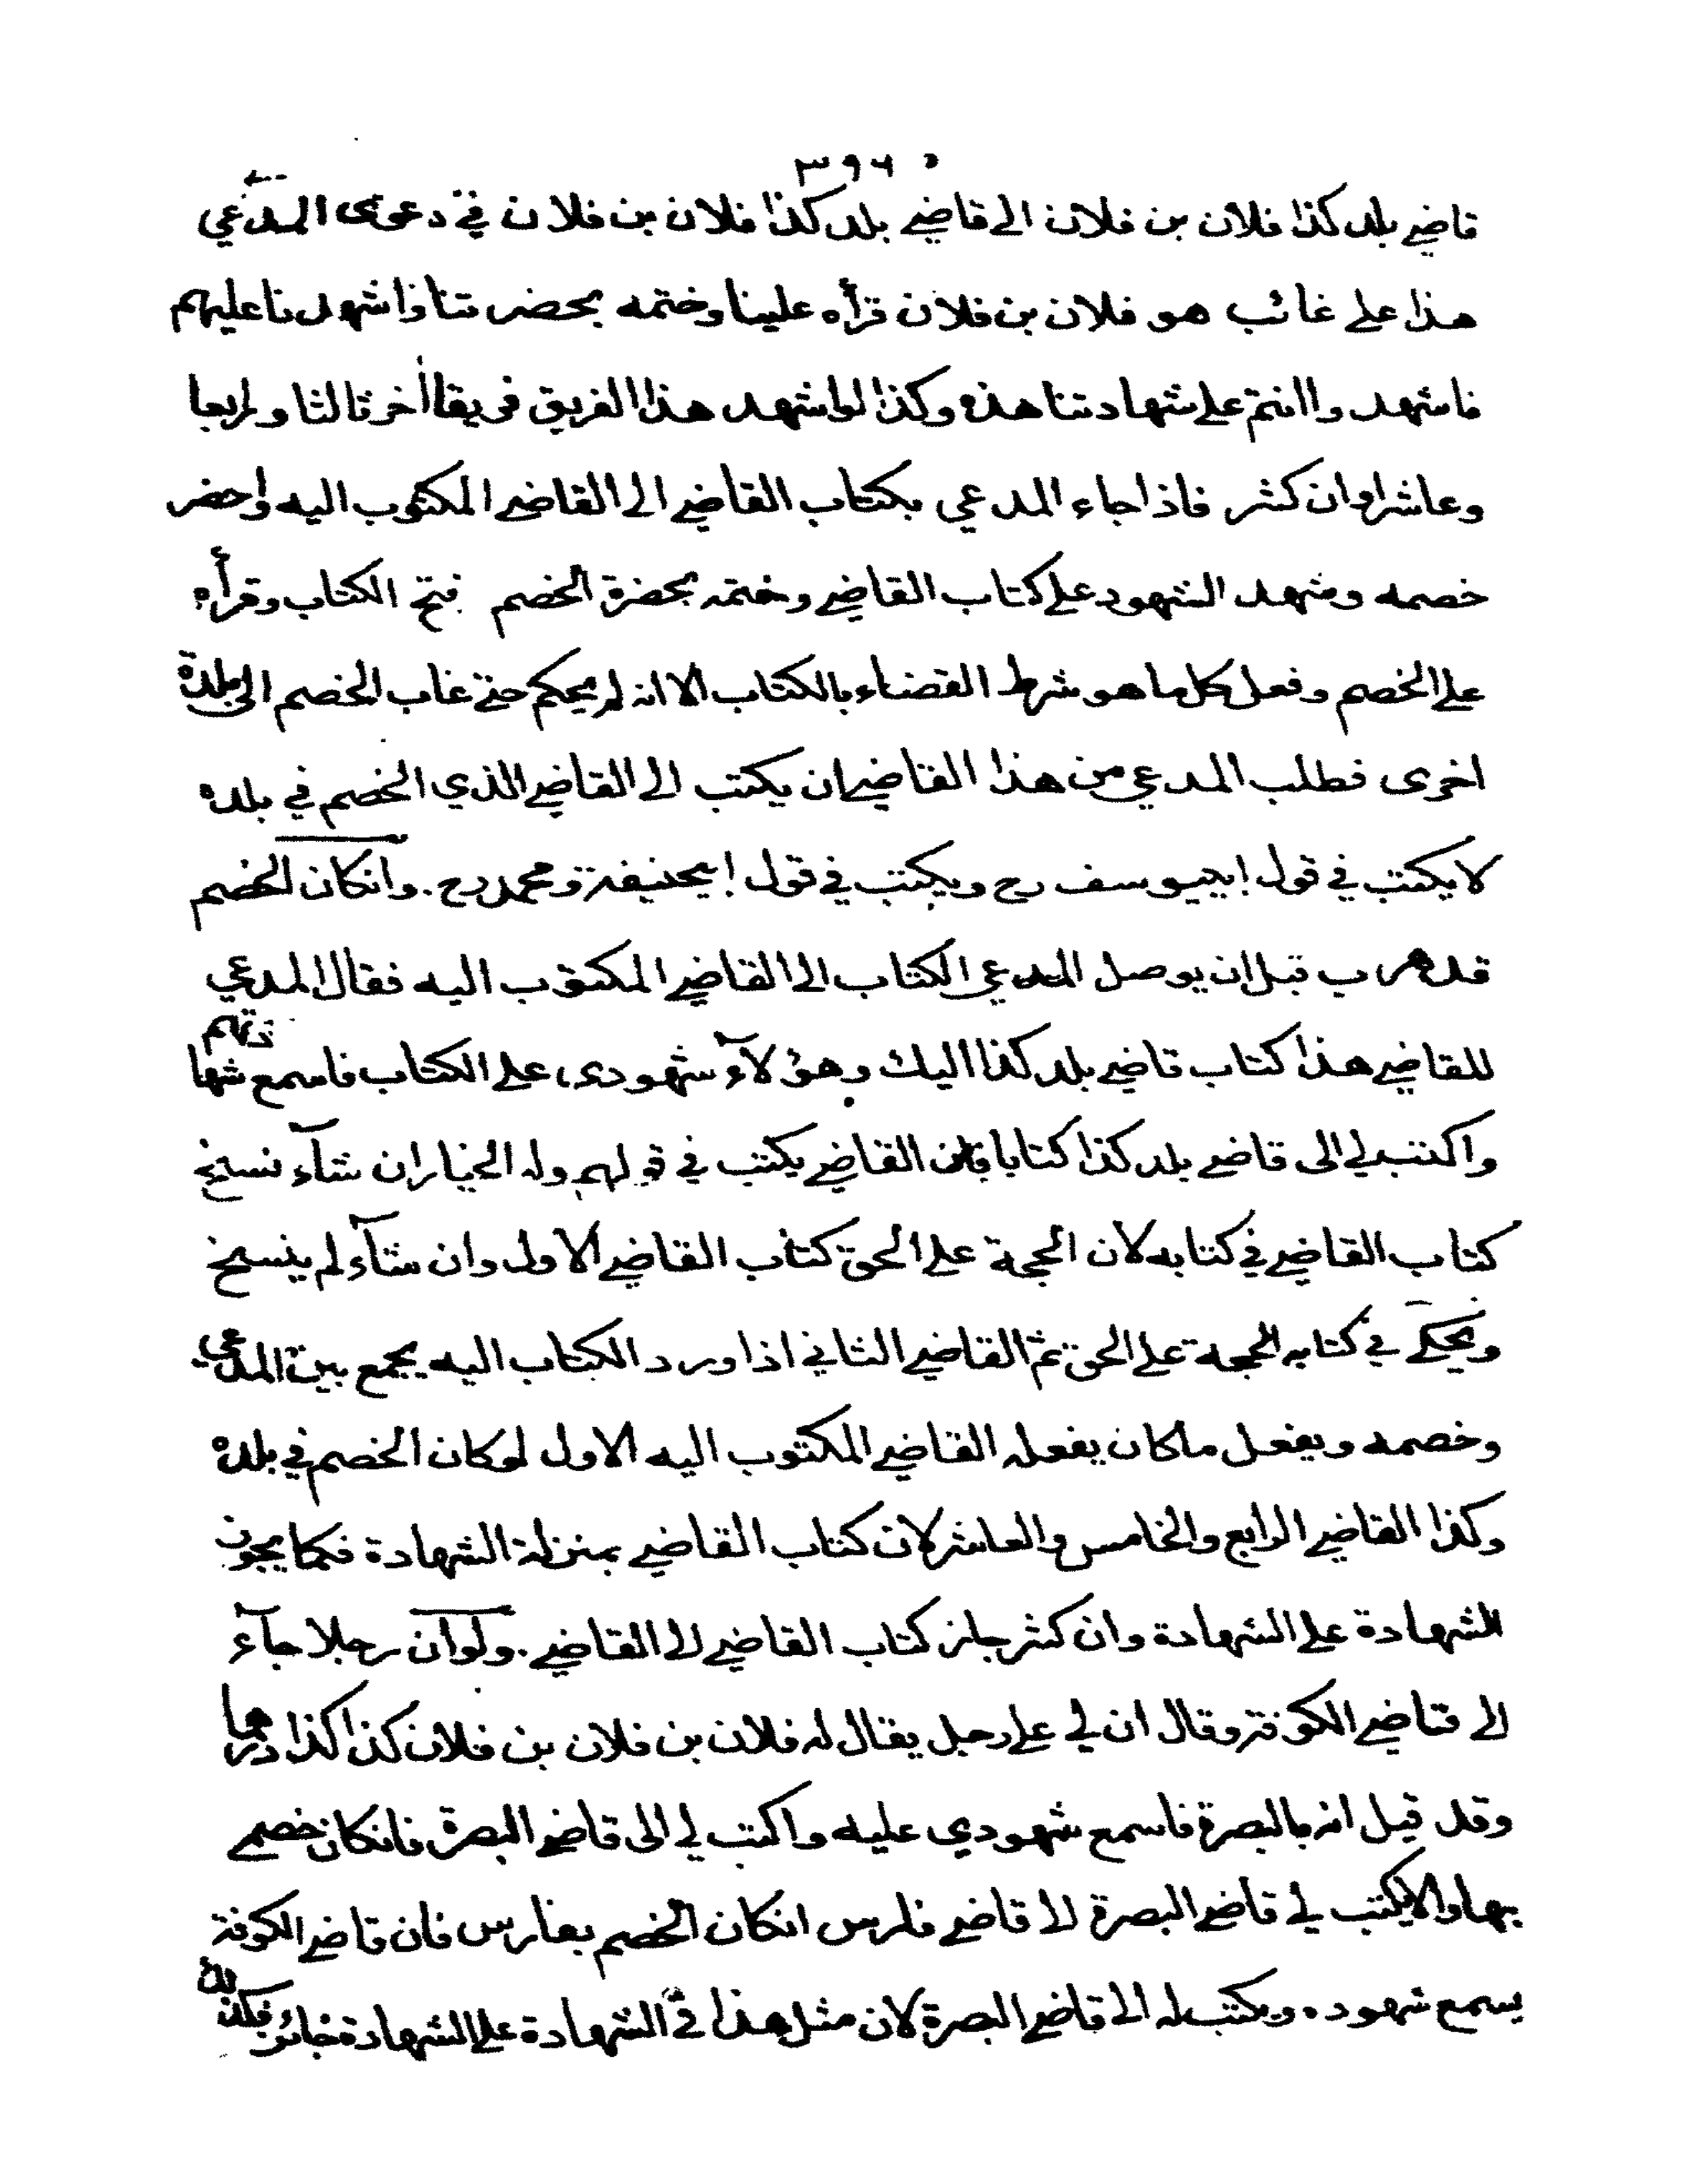 ٣٩٦
قاضي بلد كذا فلان بن فلان الى قاضي بلد كذا فلان بن فلان في دعوى المدعي
هذا على غائب هو فلان بن فلان قرأه علينا وختمه بحضرتنا واشهدنا عليهم
فاشهدوا انتم على شهادتنا هذه وكذا لو اشهد هذا الفريق فريقا اخر ثالثا ورابعا
وعاشرا وان كثر فاذا جاء المدعي بكتاب القاضي الى القاضي المكتوب اليه واحضر
خصمه وشهد الشهود على كتاب القاضي وختمه بحضرة الخصم فتح الكتاب وقرأه
على الخصم وفعل كل ما هو شرط القضاء بالكتاب الا انه لم يحكم حتى غاب الخصم الى بلدة
اخرى فطلب المدعي من هذا القاضي ان يكتب الى القاضي الذي الخصم في بلده
لا يكتب في قول ابي يوسف رح ويكتب في قول ابي حنيفة ومحمد رح . وانكان الخصم
قد هرب قبل ان يوصل المدعي الكتاب الى القاضي المكتوب اليه فقال المدعي
للقاضي هذا كتاب قاضي بلد كذا اليك وهؤلآء شهودي على الكتاب فاسمع شهادتهم
واكتب لي الى قاضي بلد كذا كتابا فان القاضي يكتب في قولهم وله الخيار ان شآء نسخ
كتاب القاضي في كتابه لان الحجة على الحق كتاب القاضي الاول وان شآء لم ينسخ
ويحكي في كتابه الحجة على الحق ثم القاضي الثاني اذا ورد الكتاب اليه يجمع بين المدعي
وخصمه ويفعل ما كان يفعله القاضي المكتوب اليه الاول لو كان الخصم في بلده
وكذا القاضي الرابع والخامس والعاشر لان كتاب القاضي بمنزلة الشهادة فكما يجوز
الشهادة على الشهادة وان كثر جاز كتاب القاضي الى القاضي . ولو ان رجلا جآء
الى قاضي الكوفة وقال ان لي على رجل يقال له فلان بن فلان بن فلان كذا كذا درهما
وقد قيل انه بالبصرة فاسمع شهودي عليه واكتب لي الى قاضي البصرة فانكان خصمي
بها والا يكتب لي قاضي البصرة الى قاضي فارس انكان الخصم بفارس فان قاضي الكوفة
يسمع شهوده ويكتب له الى قاضي البصرة لان مثل هذا في الشهادة على الشهادة جائز فكذلك